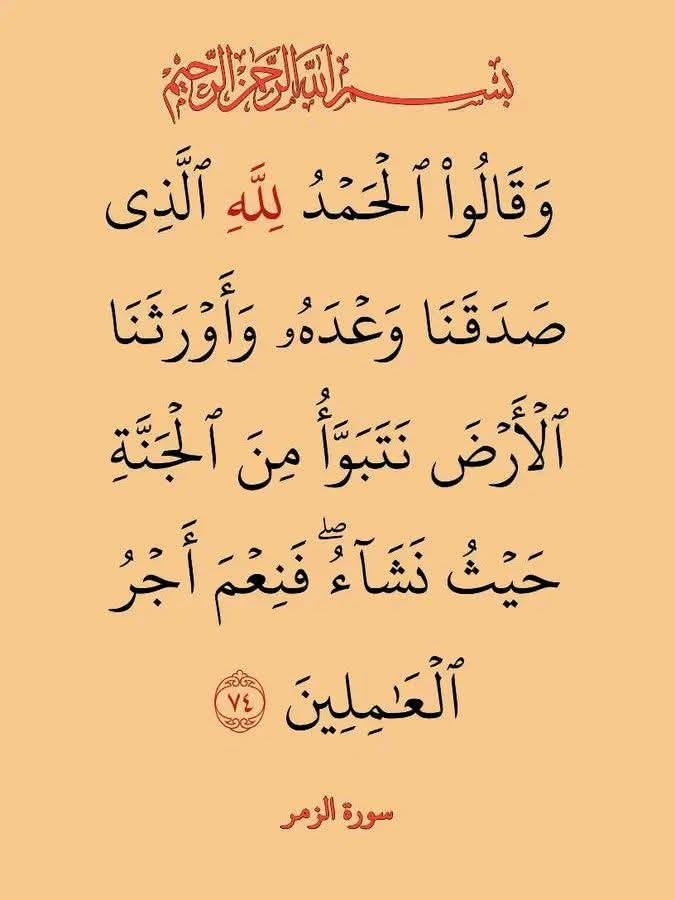 بسم الله الرحمن الرحيم
وَقَالُوا۟ ٱلْحَمْدُ لِلَّهِ ٱلَّذِى
صَدَقَنَا وَعْدَهُۥ وَأَوْرَثَنَا
ٱلْأَرْضَ نَتَبَوَّأُ مِنَ ٱلْجَنَّةِ
حَيْثُ نَشَآءُ ۖ فَنِعْمَ أَجْرُ
ٱلْعَـٰمِلِينَ ٧٤
سورة الزمر